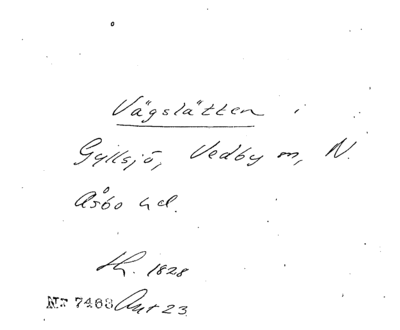 Vägslätten i
Gyllsjö, Vedby m, N.
Åsbo hd.
th. 1828
Nr 7463 Ant 23